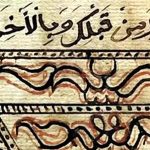 مِن قَبْلِكَ وَبِالْأَخِر